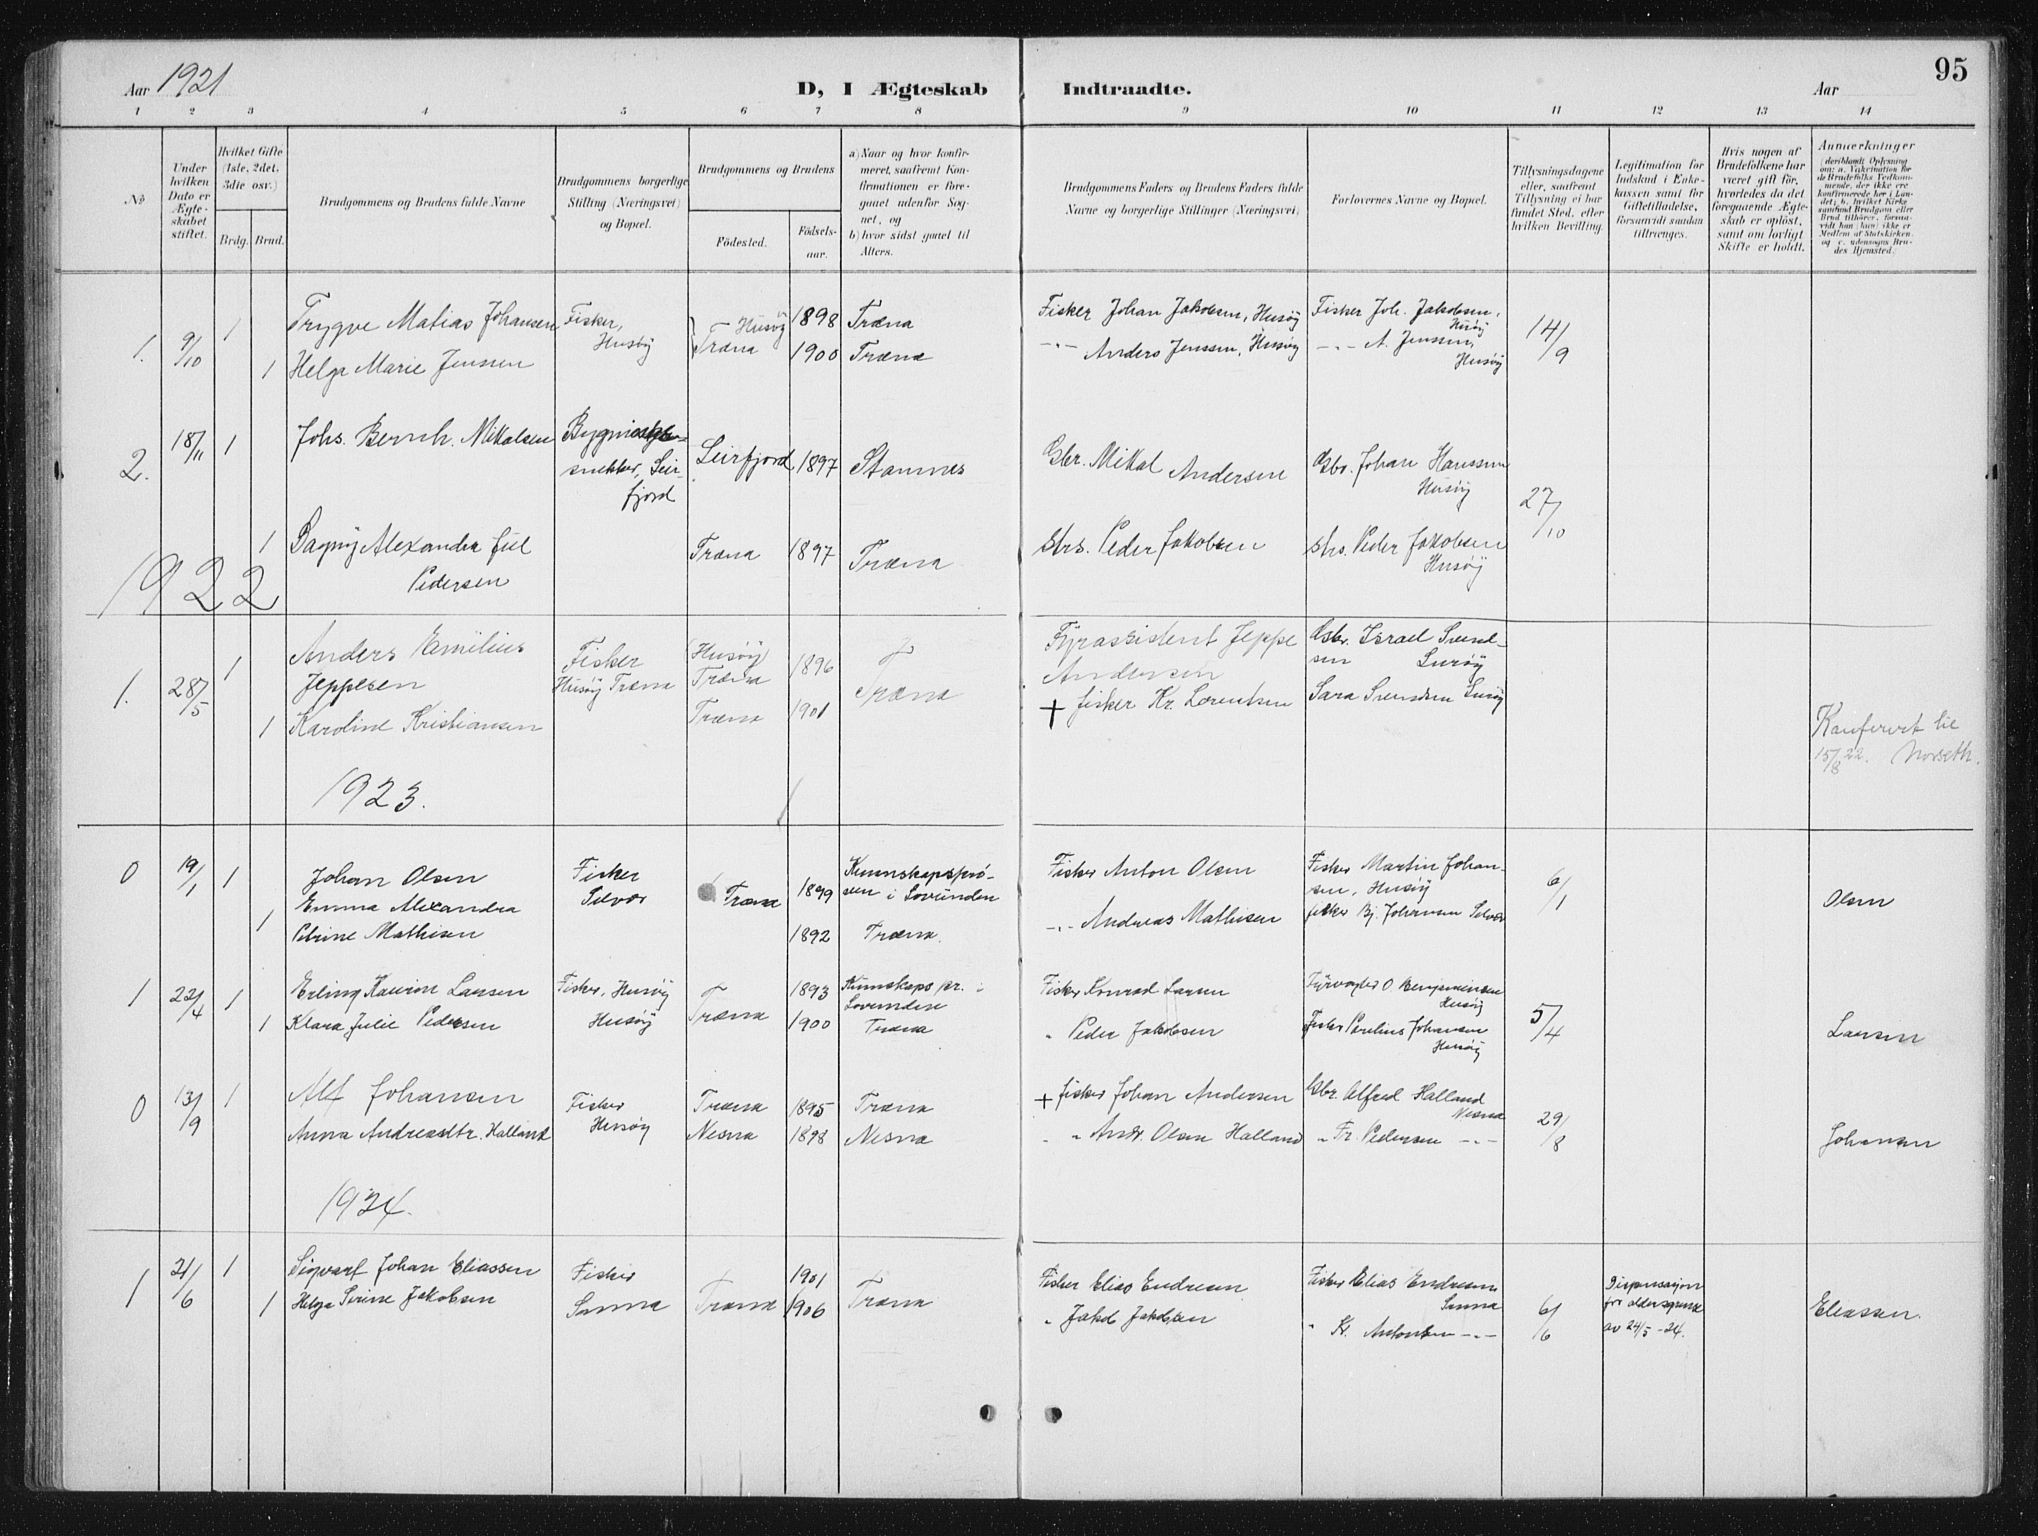 95
Aar 1921
D, I Ægteskab Indtraadte.
Aar
1 2 3 4 5 6 7 8 9 10 11 12 13 14
No
Under hvilken Dato er Ægteskabet stiftet.
Hvilket Gifte (1ste, 2det, 3die osv.)
Brdg. Brud.
Brudgommens og Brudens fulde Navne
Brudgommens borgerlige Stilling (Næringsvei) og Bopæl.
Brudgommens og Brudens
Fødested.
Fødsels-aar.
a) Naar og hvor konfirmeret, saafremt Konfirmationen er foregaaet udenfor Sognet, og
b) hvor sidst gaaet til Alters.
Brudgommens Faders og Brudens Faders fulde Navne og borgerlige Stillinger (Næringsvei)
Forlovernes Navne og Bopæl.
Tillysningsdagene eller, saafremt Tillysning ei har fundet Sted, efter hvilken Bevilling.
Legitimation for Indskud i Enkekassen samt for Giftetilladelse, forsaavidt saadan tiltrænges.
Hvis nogen af Brudefolkene har været gift før, hvorledes da det foregaaende Ægteskab er opløst, samt om lovligt Skifte er holdt.
Anmærkninger (deriblandt Oplysning om: a. Vakcination for de Brudefolks Vedkommende, der ikke ere konfirmerede her i Landet; b. hvilket Kirkesamfund Brudgom eller Brud tilhører, forsaavidt han (hun) ikke er Medlem af Statskirken, og c. udensogns Brudes Hjemsted.
1. 9/10 1 Trygve Matias Johansen Fisker, Husøy Husøy 1898 Træna Fisker Johan Jakobsen, Husøy Fisker Joh. Jakobsen, Husøy 14/9
1 Helga Marie Jenssen Træna 1900 Træna -"- Anders Jenssen, Husøy -"- A. Jenssen, Husøy
2. 18/11 1 Johs. Bernh. Mikalsen
snekker, Leirfjord Leirfjord 1897 Stamnes Gbr. Mikal Andersen Gbr. Johan Hanssen Husøy 27/10
1 Dagny Alexandra Juel Pedersen Træna 1897 Træna Peder Jakobsen Peder Jakobsen Husøy
1922
1. 28/5 1 Anders Emilius Jeppesen Fisker Husøy Træna (Husøy) Træna 1896 Træna Fyrassistent Jeppe Andersen Gbr. Israel Svendsen Lurøy
1 Karoline Kristiansen Træna 1901 + fisker Kr. Lorentsen Sara Svendsen Lurøy
Konferert
15/8 22.
1923.
0 19/1 1 Johan Olsen Fisker Selvær Træna 1899 Kunnskapsprøsen i Lovunden Fisker Anton Olsen Fisker Martin Johansen, Husøy 6/1 Olsen
1 Emma Alexandra Petrine Mathisen 1892 Træna. -"- Andreas Mathisen fisker Bj. Johansen Selvær
1 22/4 1 Erling Larsen Fisker, Husøy Træna 1893 Kunskaps pr. i Lovunden Fisker Konrad Larsen Fyrvogter O Benjaminsen Husøy 5/4 Larsen
1 Klara Julie Pedersen Husøy 1900 Træna " Peder Jakobsen Fisker Paulius Johansen Husøy
0 13/9 1 Alf Johansen Fisker Husøy Træna 1895 Træna + fisker Johan Andersen Gbr. Alfred Halland Nesna 29/8 Johansen
Anna Andreasdtr. Halland Nesna 1898 Nesna " Andr. Olsen Halland " Fr. Pedersen -"-
1924.
1 21/6 1 Sigvart Johan Eliassen Fisker Sanna Træna 1901 Træna Fisker Elias Endresen Fisker Elias Endresen Sanna 6/6 Dispensasjon for aldersgrense av 24/5-24. Eliassen.
1 Helga Serine Jakobsen 1906 " Jakob Jakobsen " Kr. Antonsen -"-